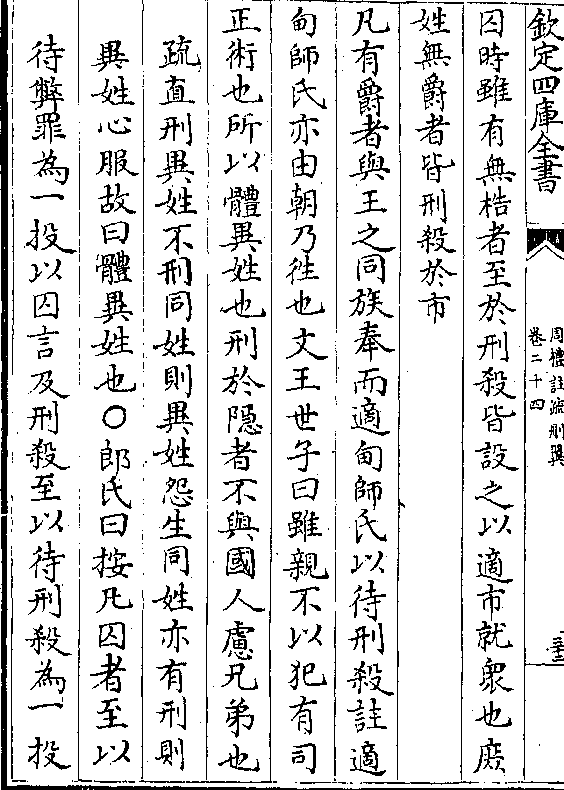 欽定四庫全書
周禮註疏刪翼
卷二十四
囚時雖有無梏者至於刑殺皆設之以適市就衆也庶
姓無爵者皆刑殺於市
凡有爵者與王之同族奉而適甸師氏以待刑殺註適
甸師氏亦由朝乃徃也文王世子曰雖親不以犯有司
正術也所以體異姓也刑於隠者不與國人慮兄弟也
疏直刑異姓不刑同姓則異姓怨生同姓亦有刑則
異姓心服故曰體異姓也○郎氏曰按凡囚者至以
待弊罪為一投以囚言及刑殺至以待刑殺為一投